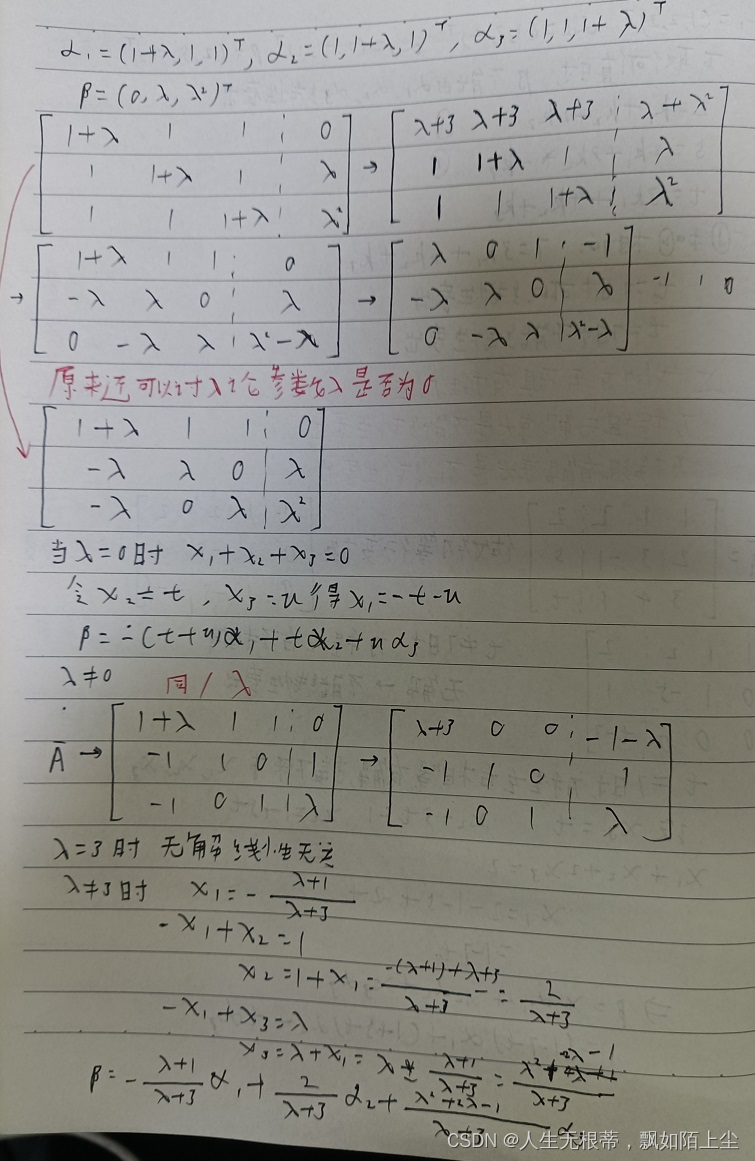 α₁=(1+λ,1,1)ᵀ, α₂=(1,1+λ,1)ᵀ, α₃=(1,1,1+λ)ᵀ
β=(0,λ,λ²)ᵀ
[1+λ 1 1 ¦ 0 → [λ+3 λ+3 λ+3 ¦ λ+λ²
1 1+λ 1 ¦ λ 1 1+λ 1 ¦ λ
1 1 1+λ ¦ λ²] 1 1 1+λ ¦ λ²]
→ [1+λ 1 1 ¦ 0 → [λ 0 1 ¦ -1
-λ λ 0 ¦ λ -λ λ 0 ¦ λ -1 1 0
0 -λ λ ¦ λ²-λ] 0 -λ λ ¦ λ²-λ]
原来还可以讨论参数λ是否为0
[1+λ 1 1 ¦ 0
-λ λ 0 | λ
-λ 0 λ | λ²]
当λ=0时 x₁+x₂+x₃=0
令x₂=t, x₃=u 得x₁=-t-u
β=-(t+u)α₁+tα₂+uα₃
λ≠0 同/λ
Ā → [1+λ 1 1 ¦ 0 → [λ+3 0 0 ¦ -1-λ
-1 1 0 | 1 -1 1 0 ¦ 1
-1 0 1 | λ] -1 0 1 ¦ λ]
λ=3时 无解 线性无关
λ≠3时 x₁=-(λ+1)/(λ+3)
-x₁+x₂=1
x₂=1+x₁=(-(λ+1)+λ+3)/(λ+3)=2/(λ+3)
-x₁+x₃=λ
x₃=λ+x₁=λ-(λ+1)/(λ+3)=(λ²+2λ-1)/(λ+3)
β=-(λ+1)/(λ+3)α₁+2/(λ+3)α₂+(λ²+2λ-1)/(λ+3)α₃
CSDN @人生无根蒂，飘如陌上尘